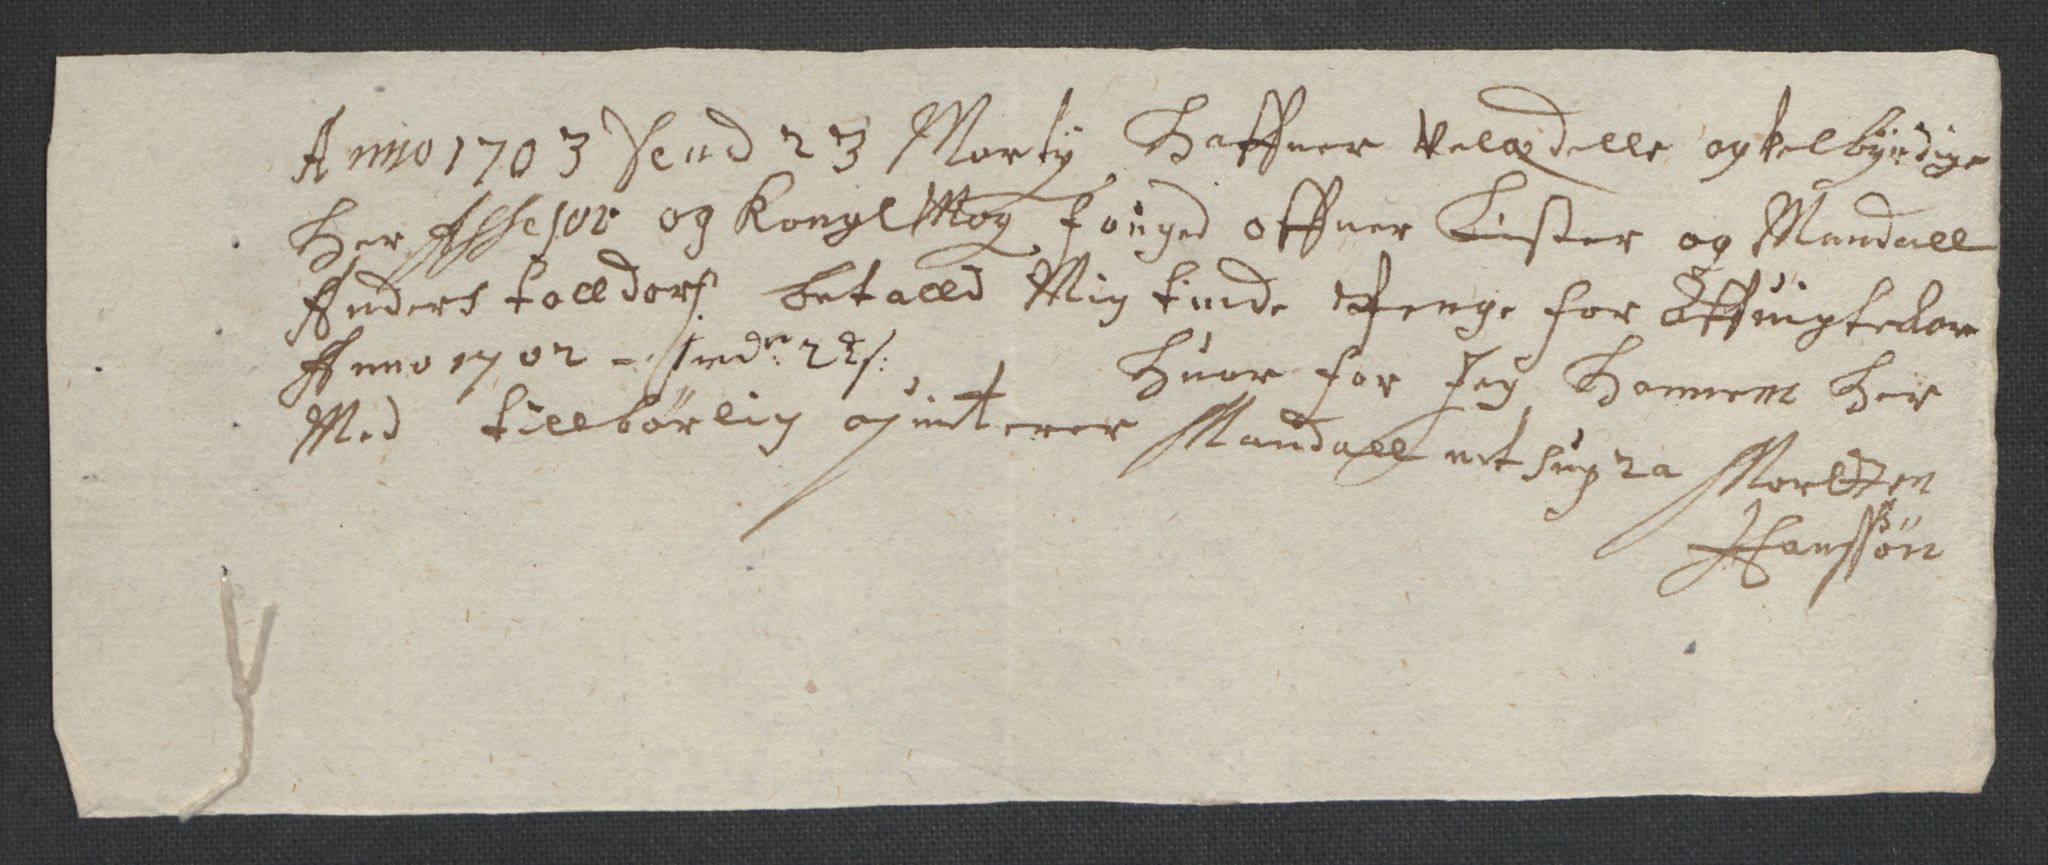 Anno 1703 dend 23 Marty Haffuer Velædelle og velbÿrdige
Her Assesor og Kongl Maÿ fouged offuer Lister og Mandall
Anders tolldorf betalld Mig tinde Penge for Øffuigtedar
Anno 1702 - 2
Huor for Jeg Hannem Her
Med tillbörlig quitterer Mandall ut supra Mortten
Hansßön